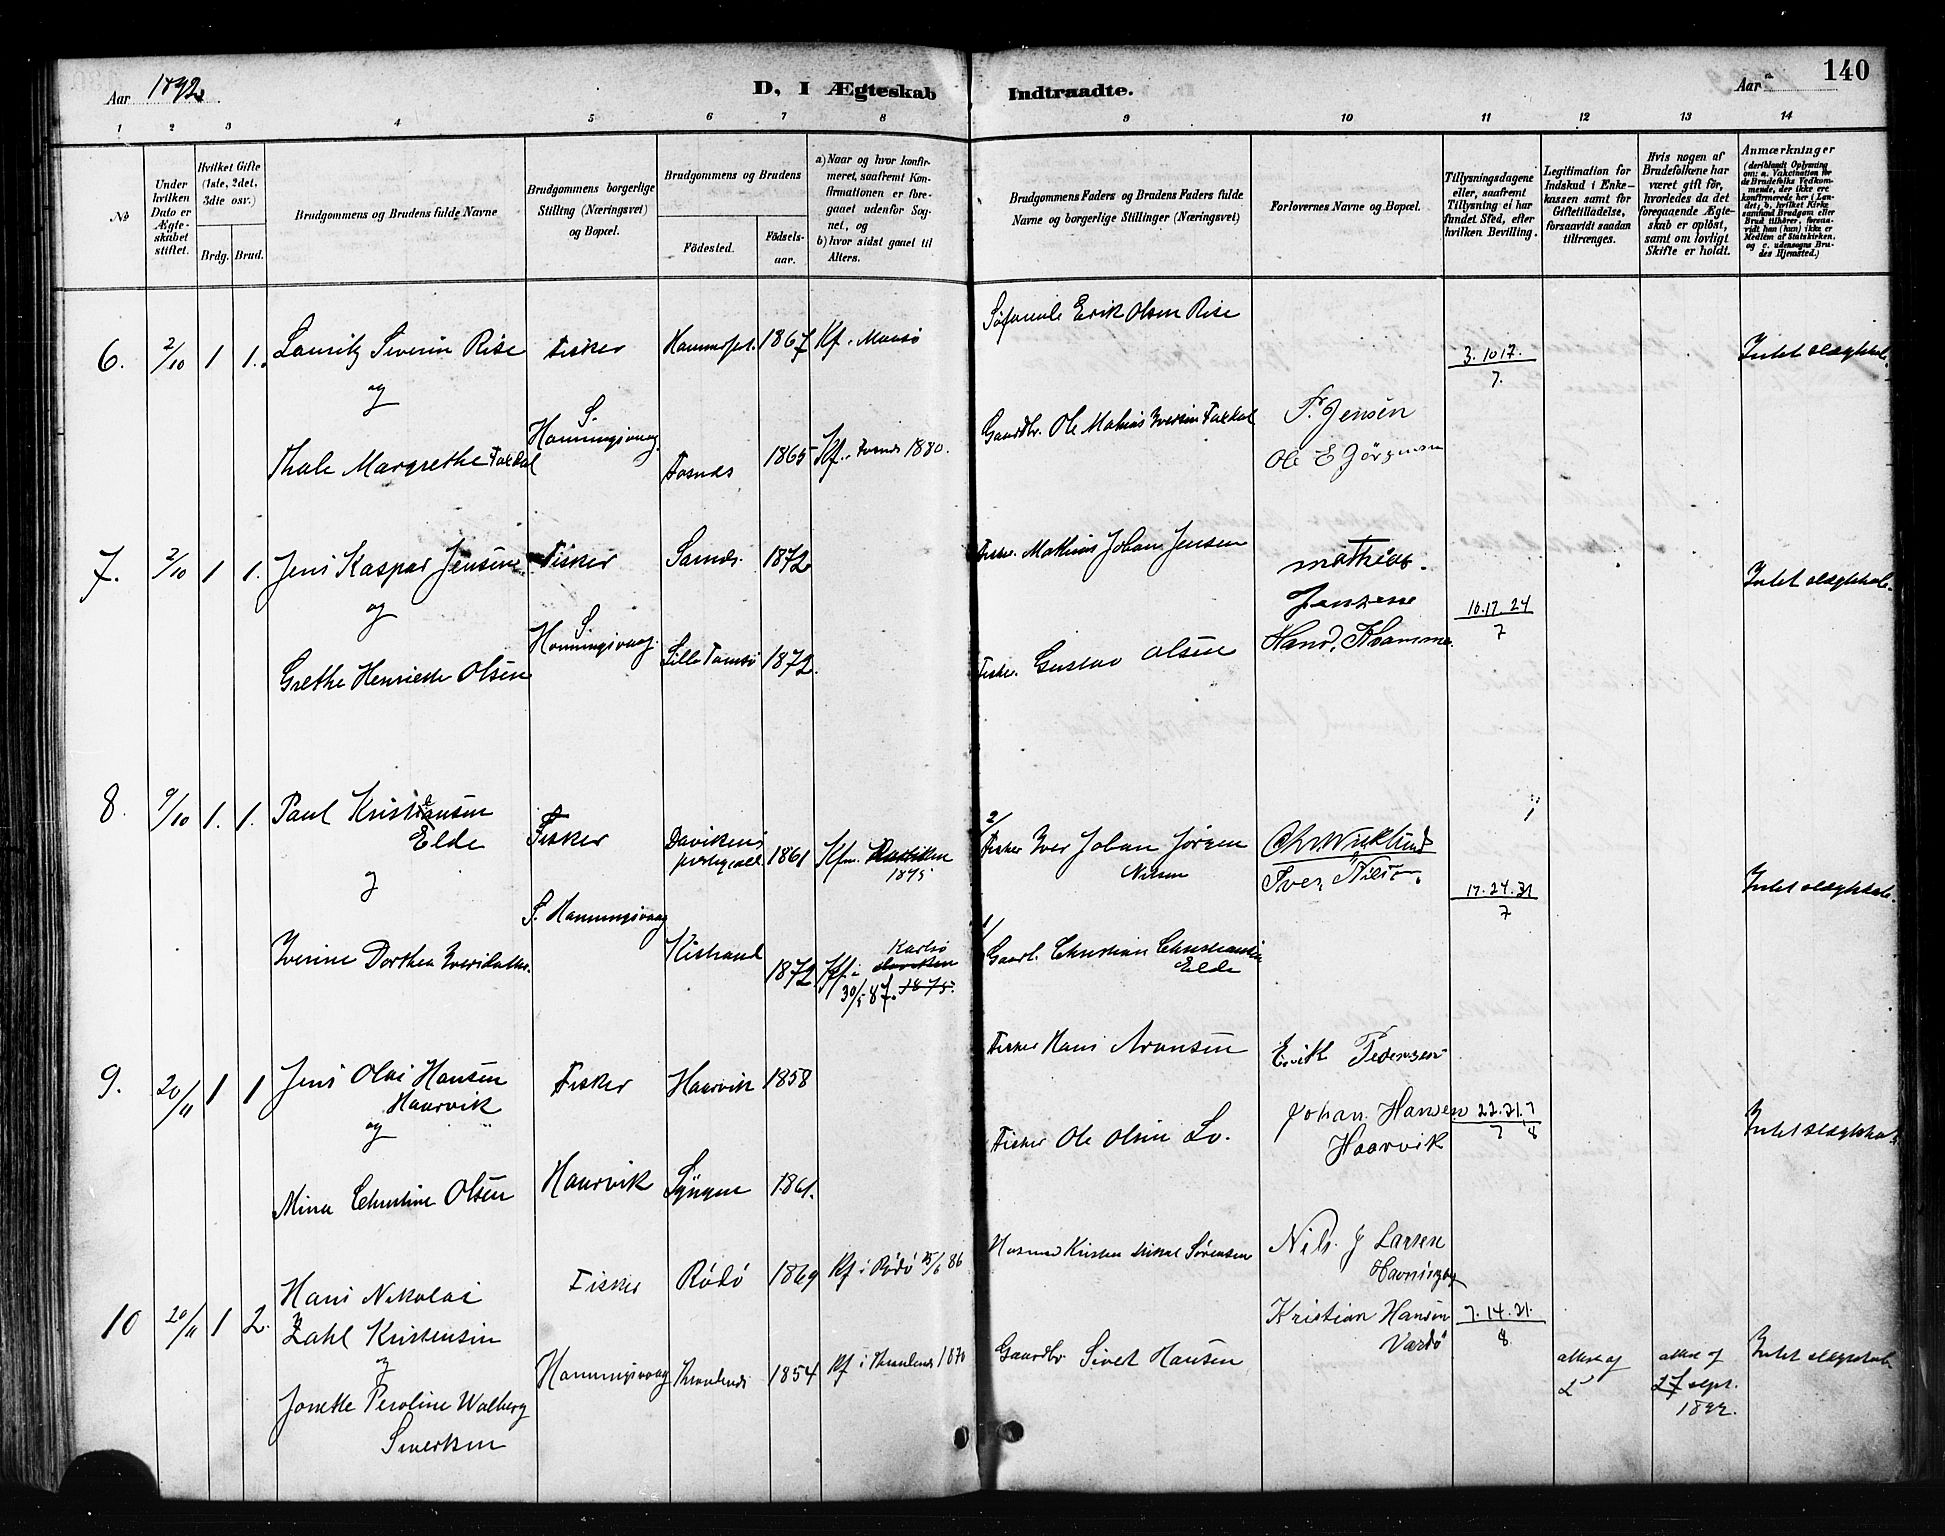 Aar 1892.
D, I Ægteskab Indtraadte.
Aar
140
1 2 3 4 5 6 7 8 9 10 11 12 13 14
No
Under hvilken Dato er Ægteskabet stiftet.
Hvilket Gifte (1ste, 2det, 3die osv.)
Brdg. Brud.
Brudgommens og Brudens fulde Navne
Brudgommens borgerlige Stilling (Næringsvei) og Bopæl.
Brudgommens og Brudens
Fødested.
Fødselsaar.
a) Naar og hvor konfirmeret, saafremt Konfirmationen er foregaaet udenfor Sognet, og
b) hvor sidst gaaet til Alters.
Brudgommens Faders og Brudens Faders fulde Navne og borgerlige Stillinger (Næringsvei)
Forlovernes Navne og Bopæl.
Tillysningsdagene eller, saafremt Tillysning ei har fundet Sted, efter hvilken Bevilling.
Legitimation for Indskud i Enkekassen samt for Giftetilladelse, forsaavidt saadan tiltrænges.
Hvis nogen af Brudefolkene har været gift før, hvorledes da det foregaaende Ægteskab er opløst, samt om lovligt Skifte er holdt.
Anmærkninger
(deriblandt Oplysning om: a. Vakcination for de Brudefolks Vedkommende, der ikke ere konfirmerede her i Landet, b. hvilket Kirkesamfund Brudgom eller Brud tilhører, forsaavidt han (hun) ikke er Medlem af Statskirken, og c. udensogns Brudes Hjemsted.)
6. 2/10 1 1. Lauritz Severin Rise Fisker 1867 Kf. Erik Olsen Rise 3. 10 17. / 7. Intet slægtskab.
og
S. Honningsvaag
Thale Margrethe Fosnæs 1865 Kf. Fosnæs 1880. Gaardbr. Ole Mathias Iversen
P. Jensen
Ole E Jørgensen
7. 2/10 1 1. Jens Kaspar Jensen Fisker 1872 Fisker Mathias Johan Jensen
mathias Jensen 10. 17. 24 / 7 Intet slægtskab.
og
S. Honningsvaag
Grethe Henriette Olsen Lille Tamsø 1872. Fisker. Gustav Olsen
8. 9/10 1. 1. Paul Kristiansen Elde Fisker Davikens 1861 Kfm. 1875
2/ Fisker Iver Johan Jørgen Nilsen
17. 24. 31 / 7 Intet slægtskab.
og
S. Honningsvaag
Iverine Dorthea Iversdatter. Kistrand 1872 Kf. i Karlsø 30/5 87. 1875.
1/ Gaardb. Christian Christiansen Elde
9. 20/11 1 1 Jens Olai Hansen Haarvik Fisker Haarvik 1858 Fisker Hans Aronsen Erik Pedersen
og
Johan Hansen Haarvik Intet slægtskab
Mina Christine Olsen Haarvik 1861. Fisker Ole Olsen
10 20/11 1 2. Hans Nikolai Zahl Kristensen Fisker Rødø 1869 Kf i Rødø 15/6 86 Sørensen
Nils J Larsen
Kristian Hansen Vardø 7. 14. 21. / 8
og
Honningsvaag 1854 Kf i 1870 Gaardbr Sivert Hansen
Peroline Walberg
attest af
attest af 27 sept.
Intet slægtskab